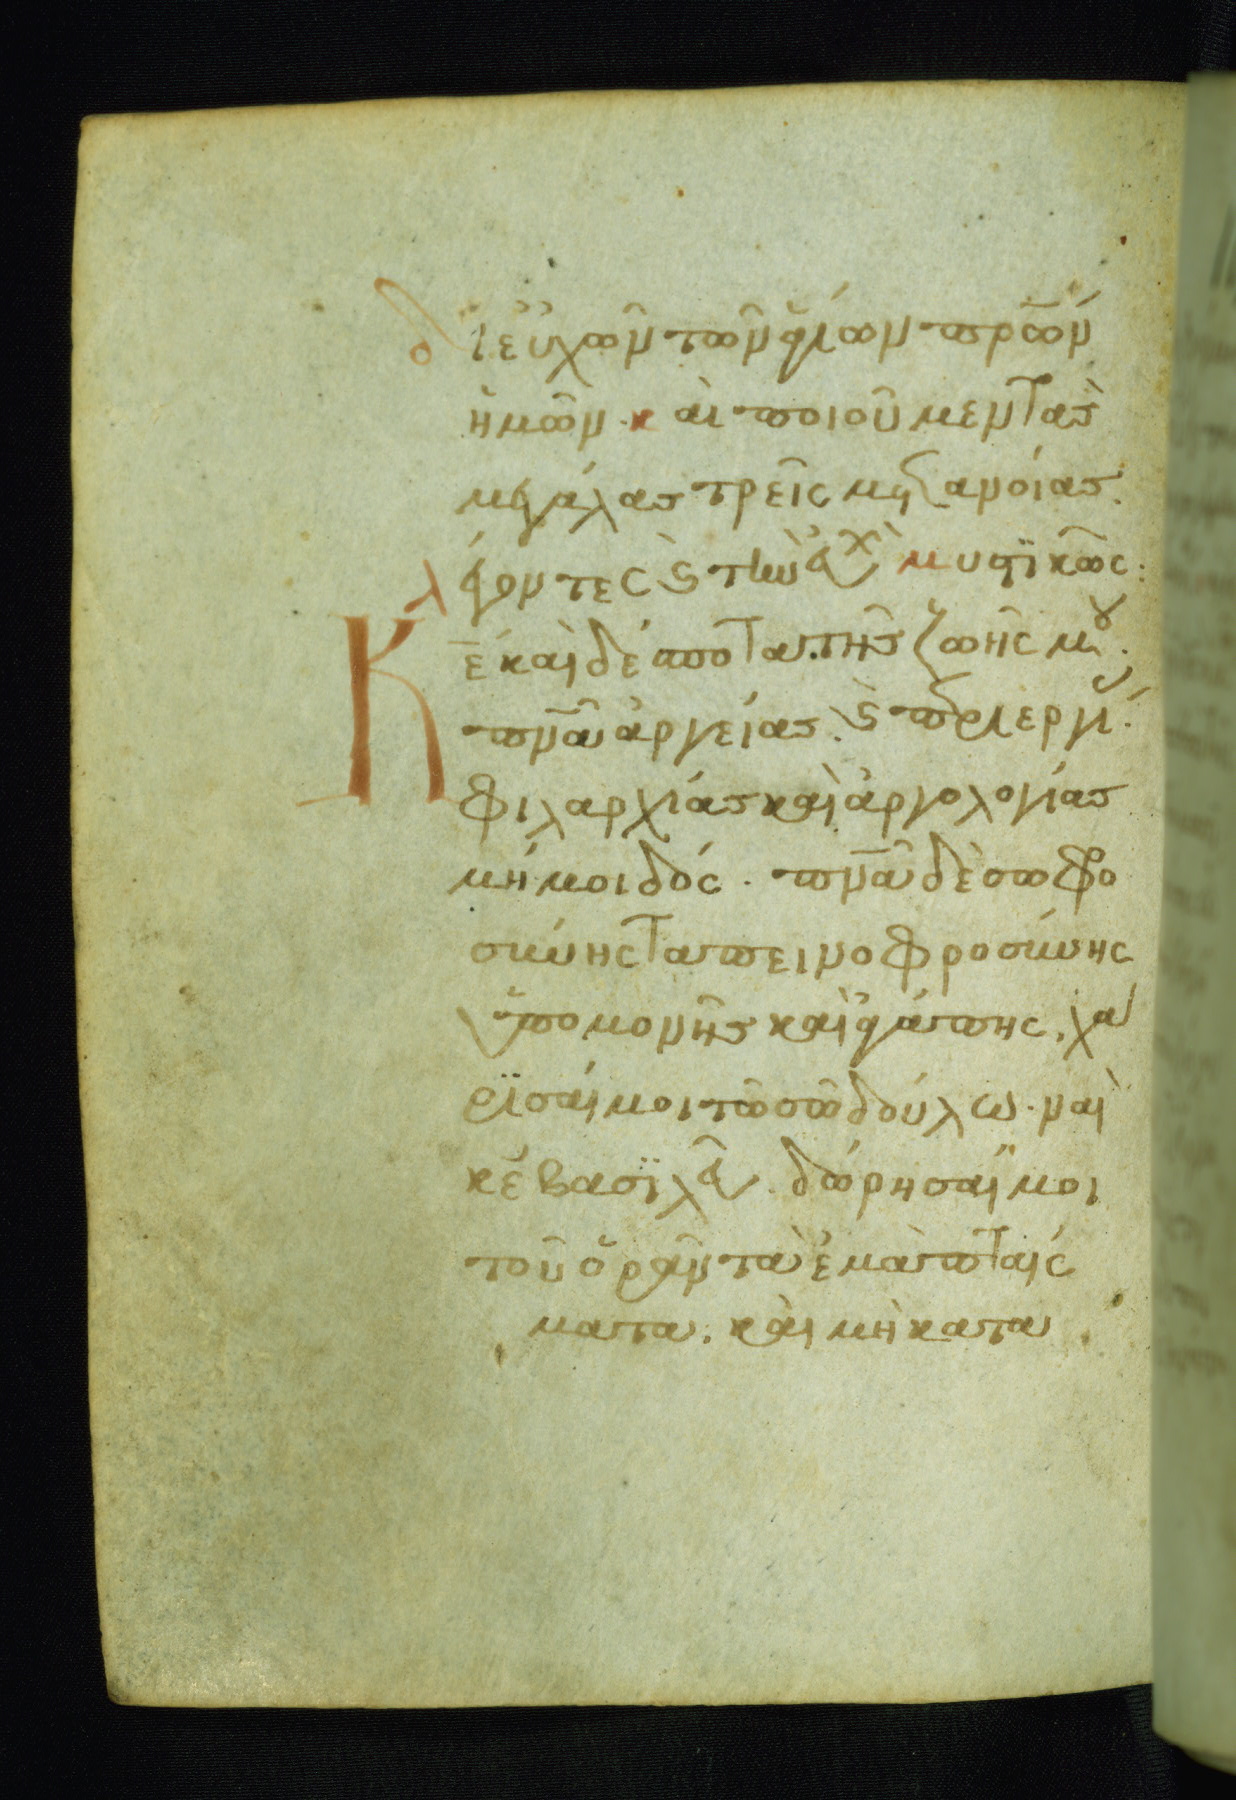 δι εὐχῶν τῶν ἁγίων πρ̅ων
ἡμῶν· καὶ ποιοῦμεν τὰς
μεγάλας τρεῖς μετανοίας.
λέγοντες ϛ τὴν εὐχ̀ μυστικῶς:
Κ̅ε καὶ δέσποτα τῆς ζωῆς μου.
πν̅α ἀργείας. ϛ περιεργί.
φιλαρχίας καὶ ἀργολογίας
μή μοι δός. πν̅α δὲ σωφρο
σύνης ταπεινοφροσύνης
ὑπομονῆς καὶ ἀγάπης. χά
ρισαί μοι τῶ σῶ δούλω. ναὶ
κ̅ε βασιλεῦ. δώρησαί μοι
τοῦ ὁρᾶν τὰ ἐμὰ πταίς
ματα. καὶ μὴ κατα